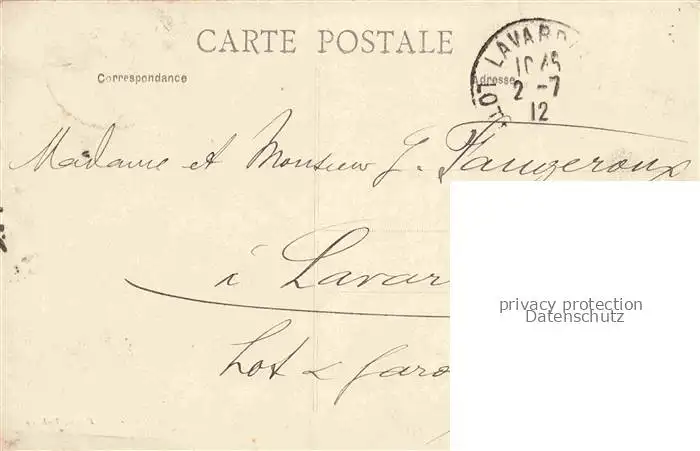 CARTE POSTALE
Correspondance
Adresse
LAVARD
10 45
2 -7
12
LOT
Madame et Monsieur J. Faugeroux
à Lavar
Lot & Garo
privacy protection
Datenschutz